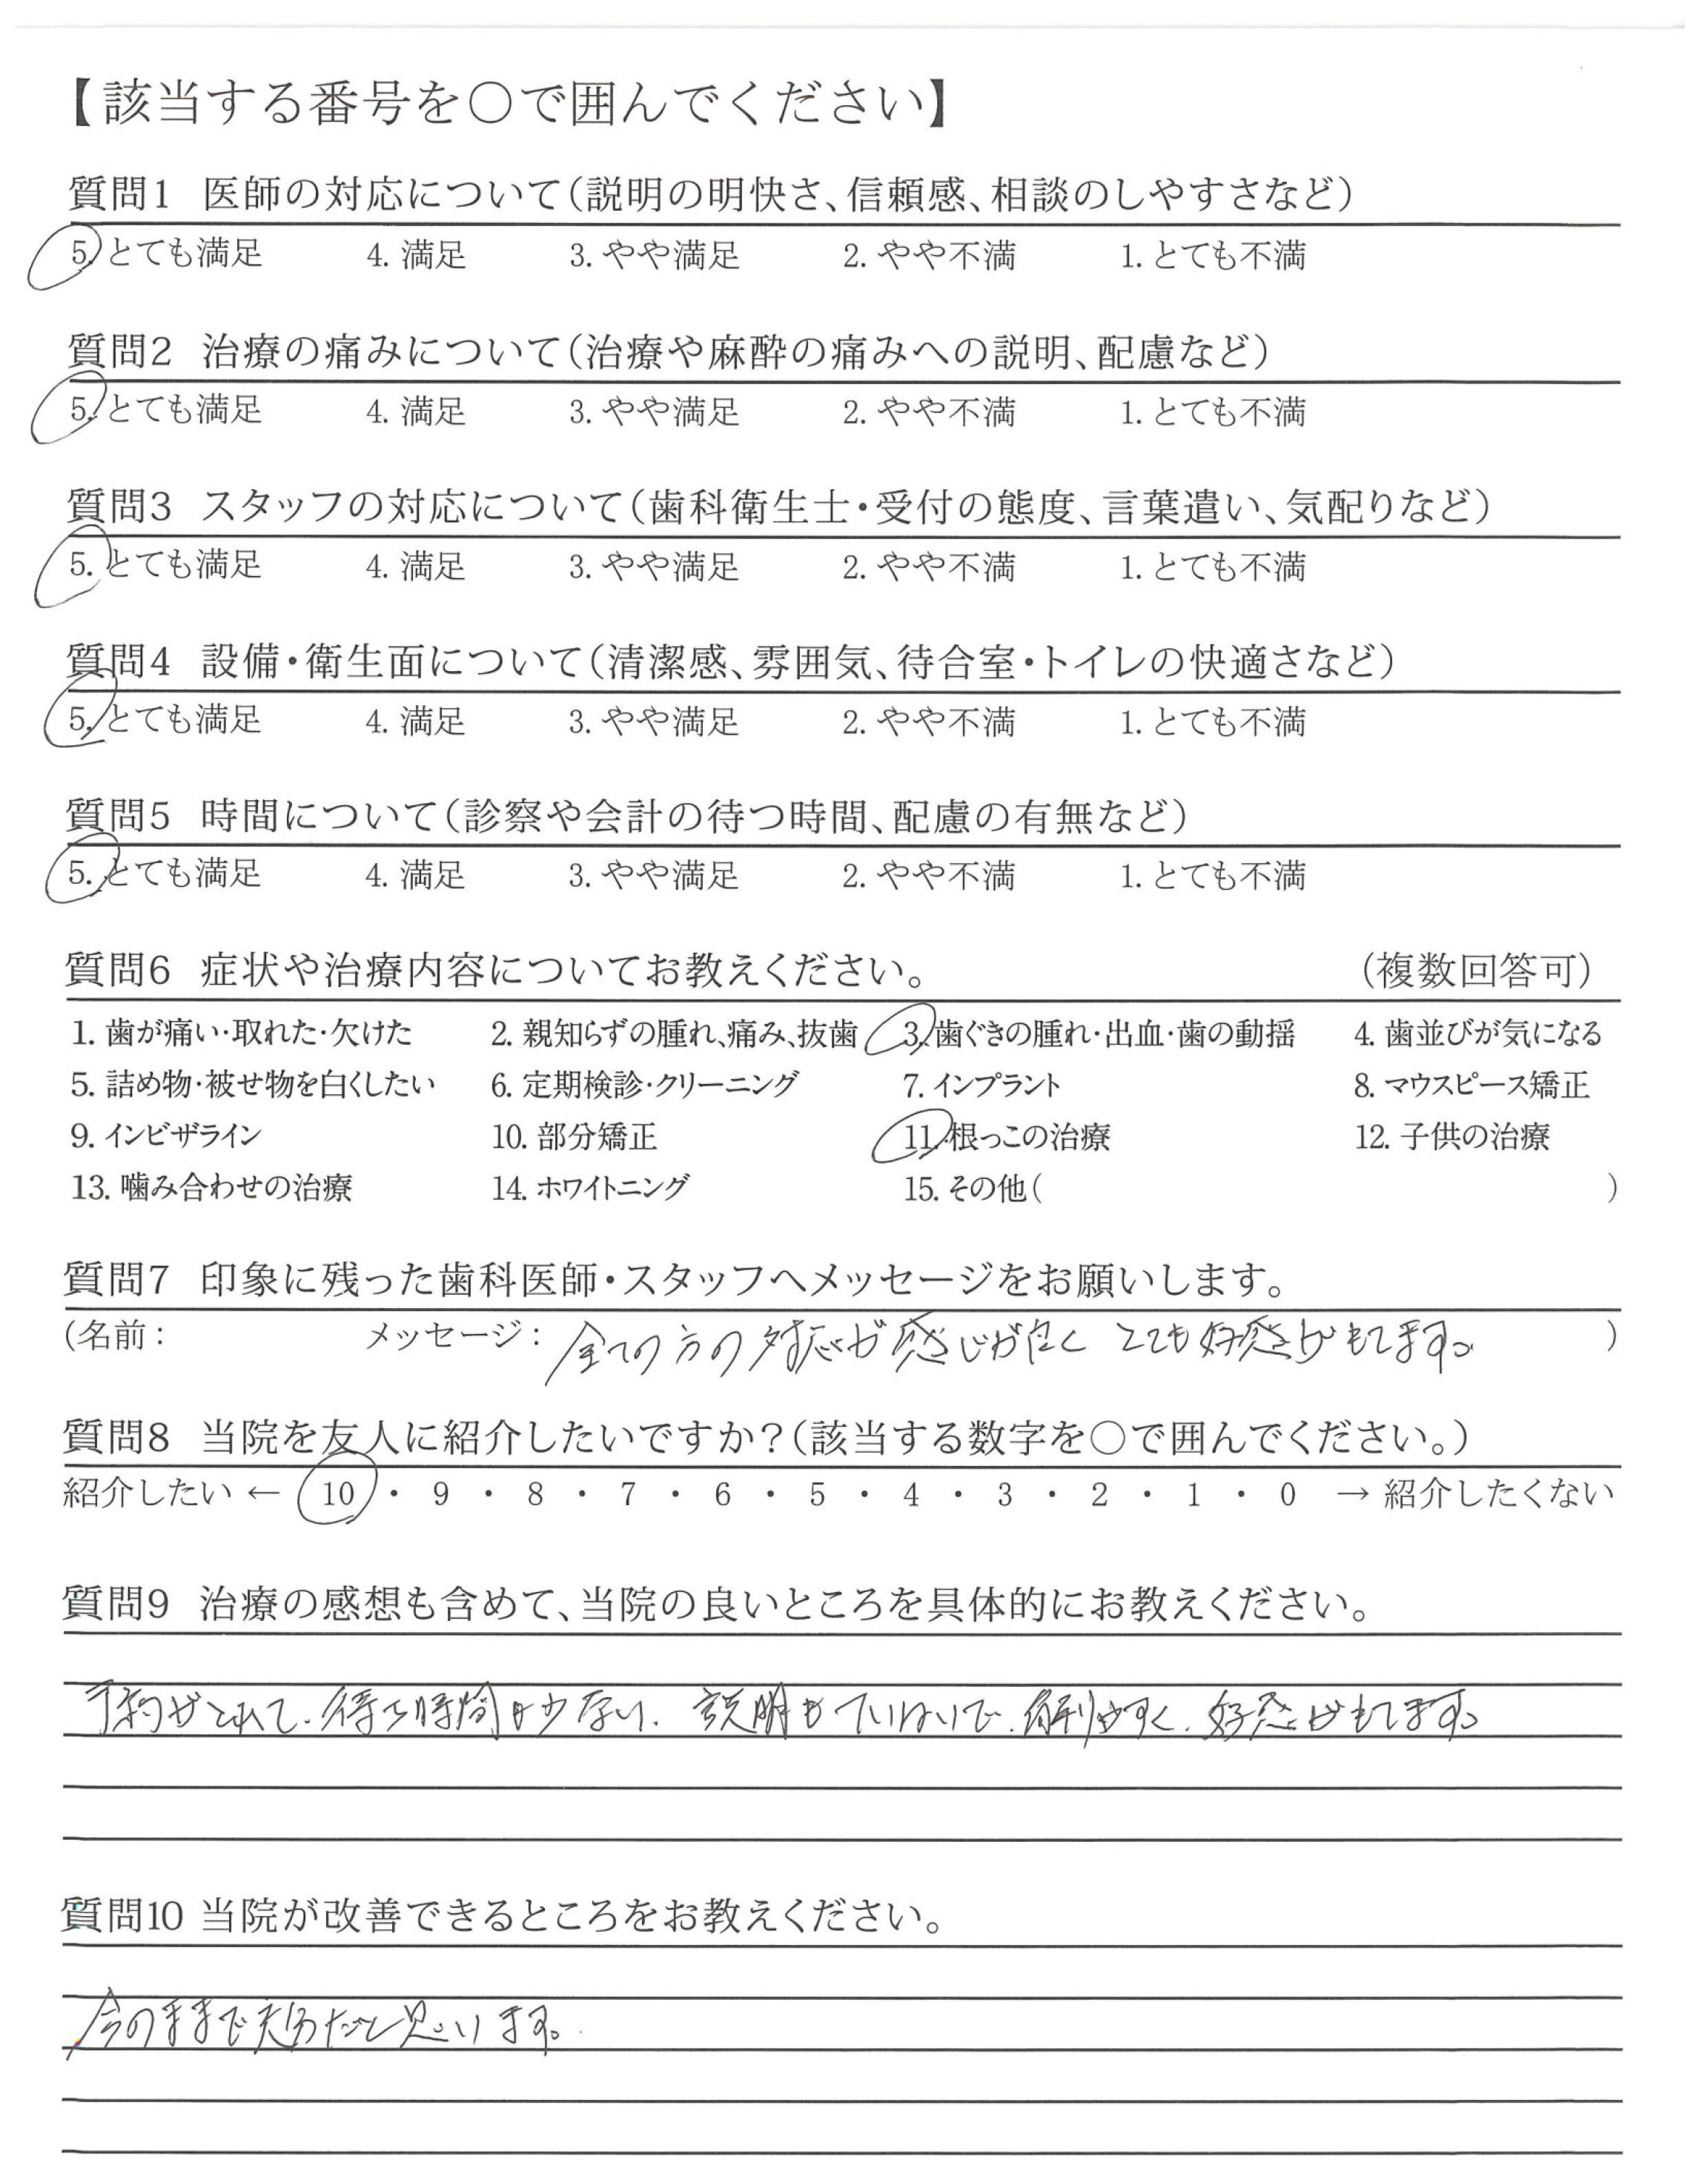 【該当する番号を〇で囲んでください】
質問1 医師の対応について(説明の明快さ、信頼感、相談のしやすさなど)
5. とても満足 4. 満足 3. やや満足 2. やや不満 1. とても不満
質問2 治療の痛みについて(治療や麻酔の痛みへの説明、配慮など)
5. とても満足 4. 満足 3. やや満足 2. やや不満 1. とても不満
質問3 スタッフの対応について(歯科衛生士・受付の態度、言葉遣い、気配りなど)
5. とても満足 4. 満足 3. やや満足 2. やや不満 1. とても不満
質問4 設備・衛生面について(清潔感、雰囲気、待合室・トイレの快適さなど)
5. とても満足 4. 満足 3. やや満足 2. やや不満 1. とても不満
質問5 時間について(診察や会計の待つ時間、配慮の有無など)
5. とても満足 4. 満足 3. やや満足 2. やや不満 1. とても不満
質問6 症状や治療内容についてお教えください。 (複数回答可)
1. 歯が痛い・取れた・欠けた 2. 親知らずの腫れ、痛み、抜歯 3. 歯ぐきの腫れ・出血・歯の動揺 4. 歯並びが気になる
5. 詰め物・被せ物を白くしたい 6. 定期検診・クリーニング 7. インプラント 8. マウスピース矯正
9. インビザライン 10. 部分矯正 11. 根っこの治療 12. 子供の治療
13. 噛み合わせの治療 14. ホワイトニング 15. その他( )
質問7 印象に残った歯科医師・スタッフへメッセージをお願いします。
(名前: メッセージ: 全ての方の対応が感じが良く とても好感がもてます。 )
質問8 当院を友人に紹介したいですか?(該当する数字を〇で囲んでください。)
紹介したい ← 10 ・ 9 ・ 8 ・ 7 ・ 6 ・ 5 ・ 4 ・ 3 ・ 2 ・ 1 ・ 0 → 紹介したくない
質問9 治療の感想も含めて、当院の良いところを具体的にお教えください。
予約がとれて、待つ時間が少ない、説明もていねいで、解りやすく、好感がもてます。
質問10 当院が改善できるところをお教えください。
今のままで充分だと思います。